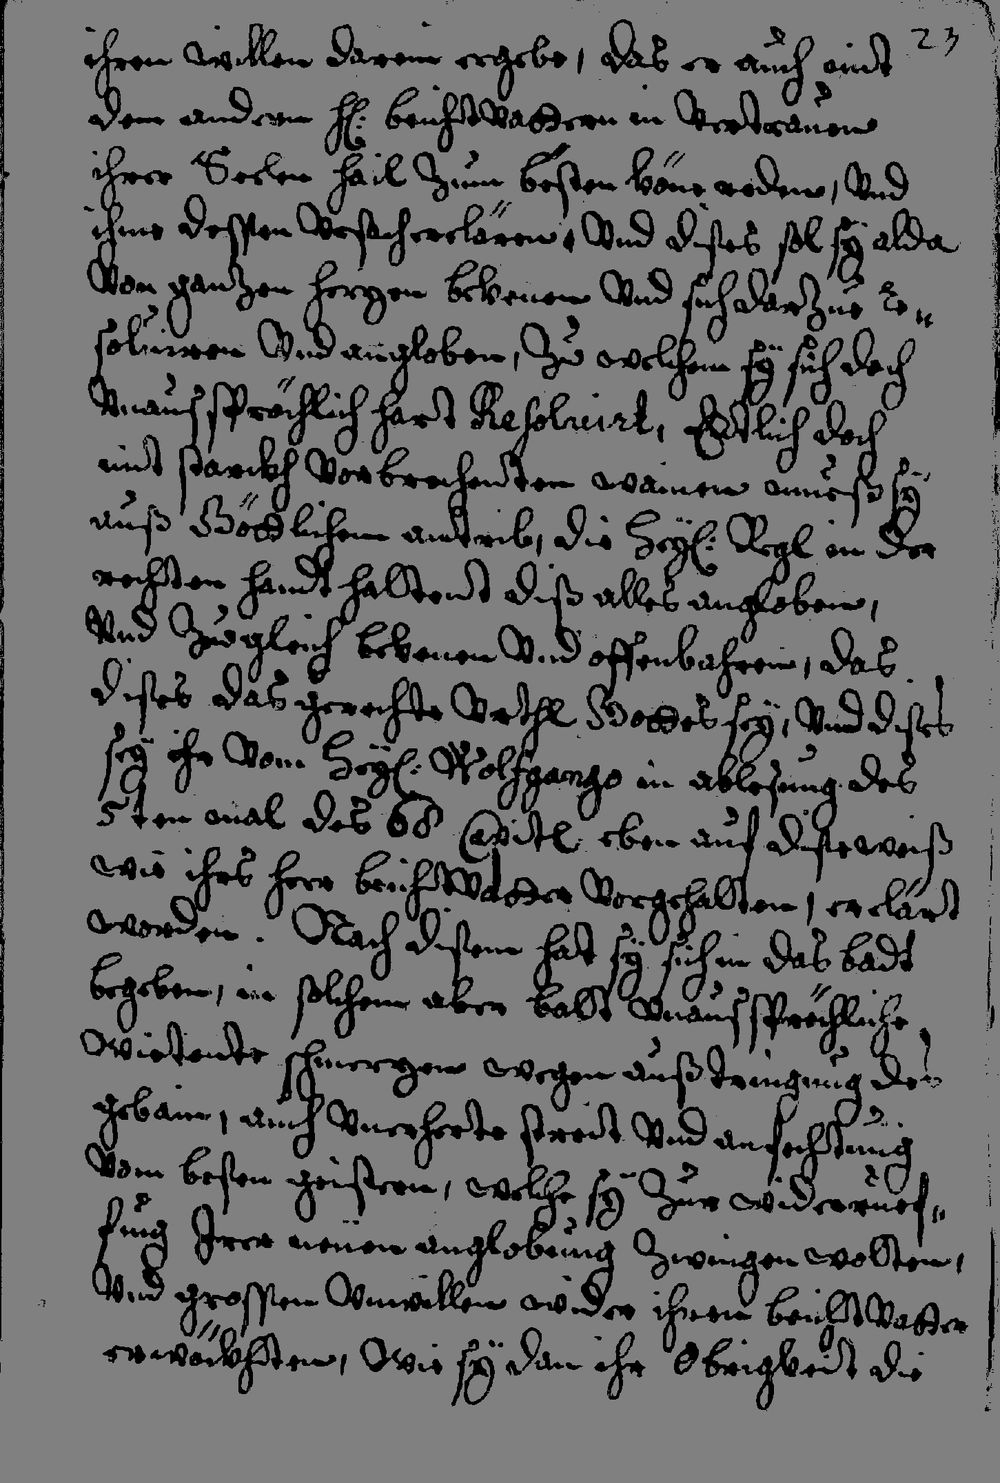 23
ihren willen darein ergebe, das er auch mit
dem andern H: beichtvattern in vertrauen
ihrer Seelen hail zum besten köne reden, Vnd
ihme dessen erclären, Vnd dises sol sÿ alda
Von gantzen hertzen bekenen Vnd sich darzue re„
solviren Vnd angloben, Zu welchem sÿ sich doch
Vnaussprächlich hart Resolvirt, Endtlich doch
mit starckh Vorbrechenten wainen muess sÿ
auß Göttlichem antrib, die Heÿl: Regl in der
rechten handt haltent diß alles angloben,
Vnd Zugleich bekenen Vnd offenbahren, das
dises das gerechte Vrthl Gottes seÿ, Vnd dises
seÿ ihr Vom Heÿl: Wolfgango in ablesung des
5ten mal des 68 Capitl eben auf dise weiß
wie ihrs herr beichtvatter Vorgehalten, erclärt
worden. Nach disem hat sÿ sich in das badt
begeben, in solchem aber balt Vnaussprächliche
wietente schmertzen wegen außtringung des
gebain, auch Vnerherte streit Vnd anfechtung
Vom besen geistern, welche sÿ Zur widerruef„
fung Irer neuen anglobung Zwingen wolten,
Vnd grossen Vnwillen wider ihren beichtvatter
erwöckhten, Wie sÿ dan ihr Obrigkeit die